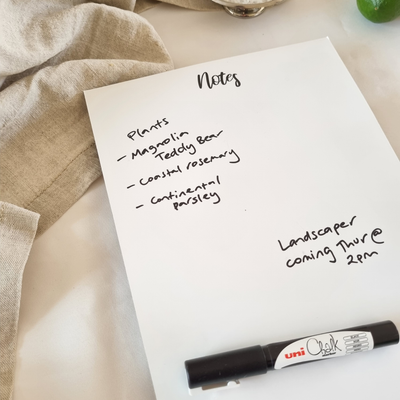 Notes
Plants
- Magnolia
Teddy Bear
- Coastal rosemary
- Continental
parsley
Landscaper
coming Thur @
2pm
uni Chalk